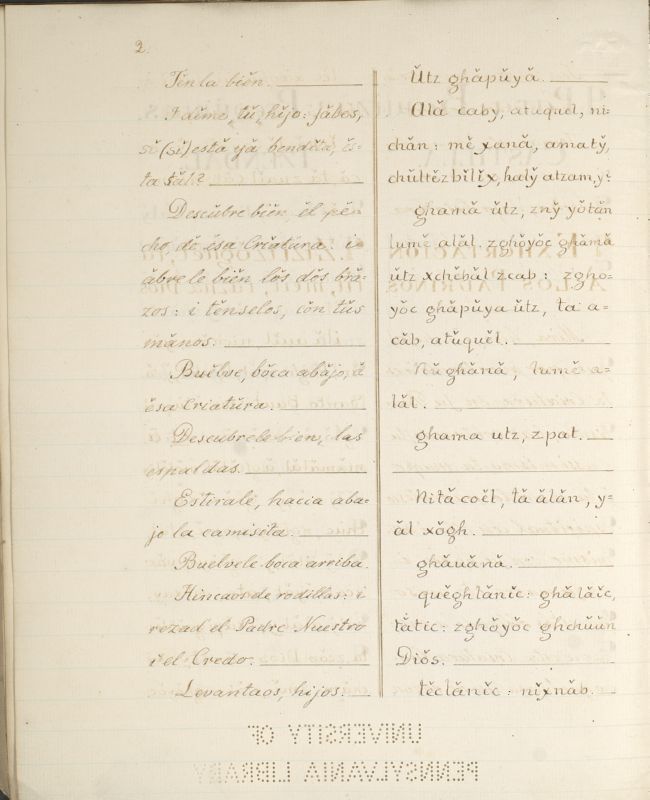 2.
Tĕn la biĕn.
I aĕmo, tŭ, hĭjo: jăbos,
sĭ (sĭ) está yă bendĭta, ĕs=
ta săl?
Descŭbre biĕn, ĕl pĕ
cho dĕ ĕsa criatŭra: i
ăbrele biĕn lŏs dŏs bră=
zos: i tĕnselos, cŏn tŭs
mănos.
Buĕlve, bŏca abăjo, ă
ĕsa criatŭra.
Descŭbrele bien, las
espaldas.
Estirale, hacia aba=
jo la camisita.
Buelvele boca arriba.
Hincaos de rodillas: i
rezad el Padre Nuestro
i el Credo.
Levantaos, hijos.
Ŭtz ghăpŭyă.
Ală caby, atuquel, ni=
chăn: mĕ xană, amatў,
chŭltĕz bĭlĭx, halў atzam, y?
ghamă ŭtz, znў yŏtăn
lumĕ alăl. zghŏyŏc ghămă
ŭtz xchĕhăl zcab: zgho=
yŏc ghăpŭya ŭtz, ta a=
căb, atŭquĕl.
Nŭghănă, lumĕ a=
lăl.
ghama utz, zpat.
Nită coĕl, tă ălăn, y=
ăl xŏgh.
ghăuănă.
quĕghlănĭc: ghălăĭc,
tătic: zghŏyŏc ghchŭŭn
Diŏs.
tĕclănĭc: nĭxnăb.
UNIVERSITY OF
PENNSYLVANIA LIBRARY